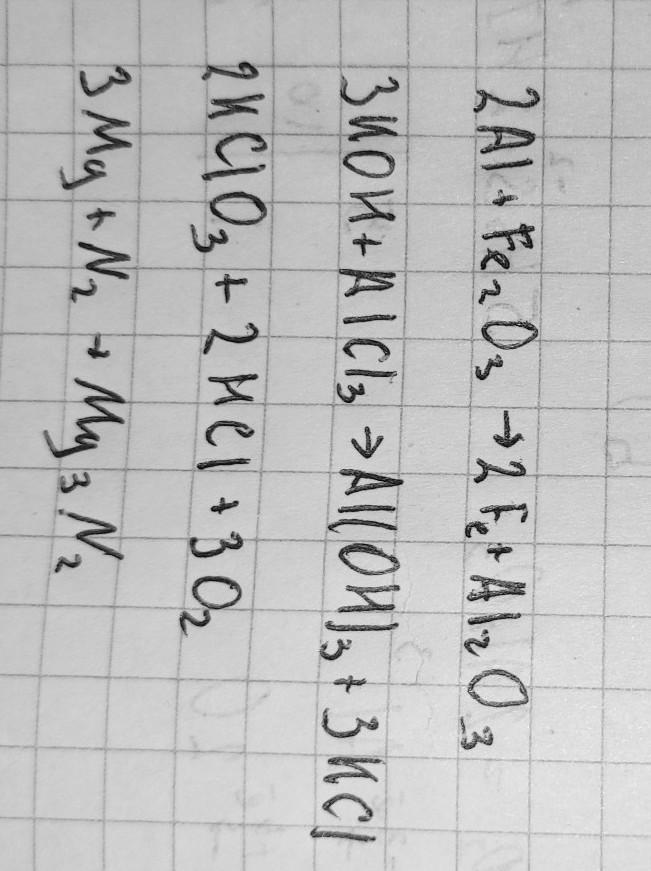 2Al + Fe₂O₃ → 2Fe + Al₂O₃
3KOH + AlCl₃ → Al(OH)₃ + 3KCl
2KClO₃ + 2KCl + 3O₂
3Mg + N₂ → Mg₃N₂